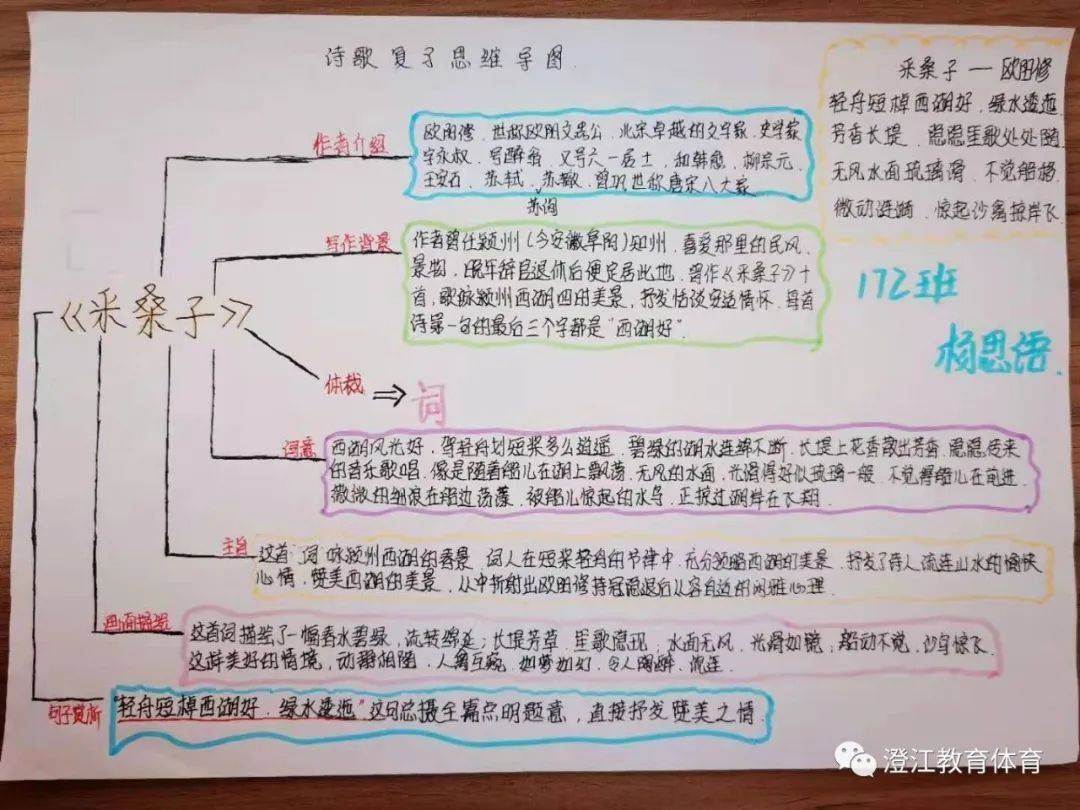 诗歌复习思维导图
采桑子 — 欧阳修
轻舟短棹西湖好,绿水逶迤
芳香长堤,隐隐笙歌处处随
无风水面琉璃滑,不觉船移
微动涟漪,惊起沙禽掠岸飞
172班
杨思语.
《采桑子》
作者介绍
欧阳修,世称欧阳文忠公,北宋卓越的文学家、史学家
字永叔,号醉翁,又号六一居士,和韩愈、柳宗元、
王安石、苏轼、苏辙、曾巩世称唐宋八大家
苏洵
写作背景
作者曾任颍州(今安徽阜阳)知州,喜爱那里的民风、
景物,晚年辞官退休后便定居此地,曾作《采桑子》十
首,歌咏颍州西湖四时美景,抒发恬淡安适情怀.每首
诗第一句的最后三个字都是"西湖好".
体裁 ⇒ 词
词意
西湖风光好,驾轻舟划短桨多么逍遥,碧绿的湖水连绵不断,长堤上花香散出芳香,隐隐传来
的音乐歌唱,像是随着船儿在湖上飘荡,无风的水面,光滑得好似琉璃一般,不觉得船儿在前进,
微微的细浪在船边荡漾,被船儿惊起的水鸟,正掠过湖岸在飞翔.
主旨
这首词咏颍州西湖的春景,词人在短桨轻舟的节律中,充分领略西湖的美景,抒发了诗人流连山水的愉快
心情,赞美西湖的美景,从中折射出欧阳修持冠隐退后从容自适的闲雅心理.
画面描绘
这首词描绘了一幅春水碧绿,流转绵延;长堤芳草,笙歌隐现;水面无风,光滑如镜;船动不觉,沙鸟惊飞.
这样美好的情境,动静相随,人籁与宛,如梦如幻,令人陶醉,流连.
句子赏析
"轻舟短棹西湖好,绿水逶迤"这句总摄全篇点明题意,直接抒发赞美之情.
澄江教育体育